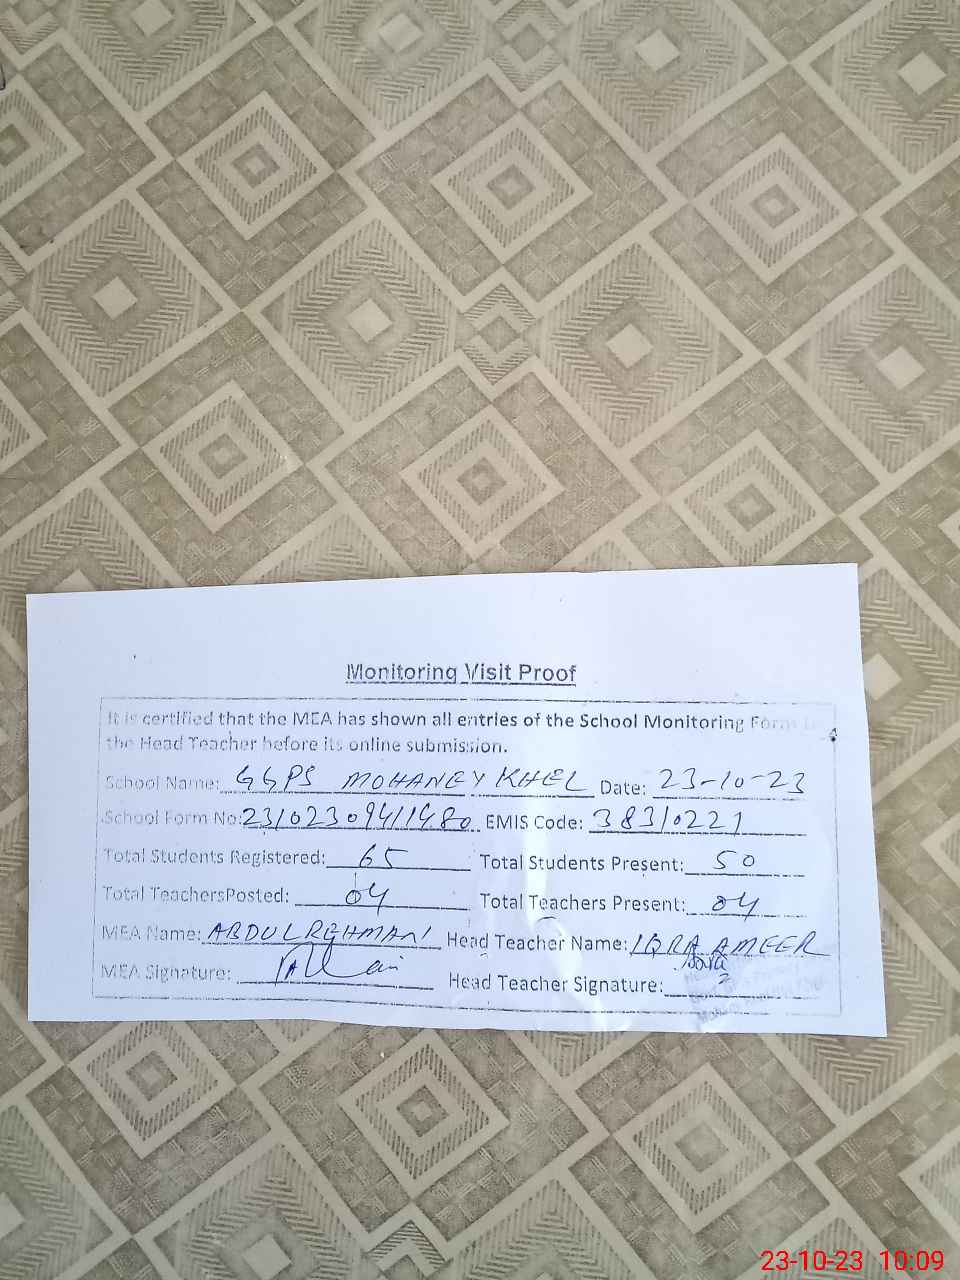 Monitoring Visit Proof
It is certified that the MEA has shown all entries of the School Monitoring Form to
the Head Teacher before its online submission.
School Name: GGPS MOHANEY KHEL Date: 23-10-23
School Form No: 231023094111480 EMIS Code: 38310221
Total Students Registered: 65 Total Students Present: 50
Total TeachersPosted: 04 Total Teachers Present: 04
MEA Name: ABDULREHMAN Head Teacher Name: IQRA AMEER
MEA Signature: Head Teacher Signature:
23-10-23 10:09